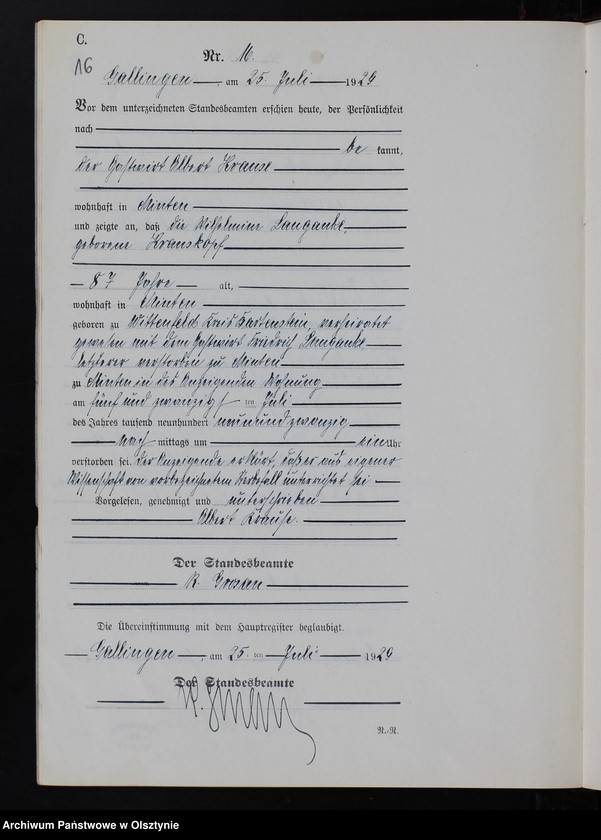 C.
Nr. 16.
16
Gallingen, am 25. Juli 1929
Vor dem unterzeichneten Standesbeamten erschien heute, der Persönlichkeit
nach
be kannt,
der Gastwirt Albert Krause
wohnhaft in Minten
und zeigte an, daß die Wilhelmine Langanke,
geborene Krauskopf
87 Jahre alt,
wohnhaft in Minten
geboren zu Wittenfeld Kreis Bartenstein, verheiratet
gewesen mit dem Gastwirt Friedrich Langanke
letzterer verstorben zu Minten
zu Minten in des Anzeigenden Wohnung
am fünf und zwanzig ten Juli
des Jahres tausend neunhundert neunundzwanzig
nach mittags um ein Uhr
verstorben sei. Der Anzeigende erklärt, daß er aus eigener
Wissenschaft von vorbezeichnetem Sterbefall unterrichtet sei
Vorgelesen, genehmigt und unterschrieben
Albert Krause.
Der Standesbeamte
R.
Die Übereinstimmung mit dem Hauptregister beglaubigt.
Gallingen, am 25. ten Juli 1929
Der Standesbeamte
R.
N.-R.
Archiwum Państwowe w Olsztynie